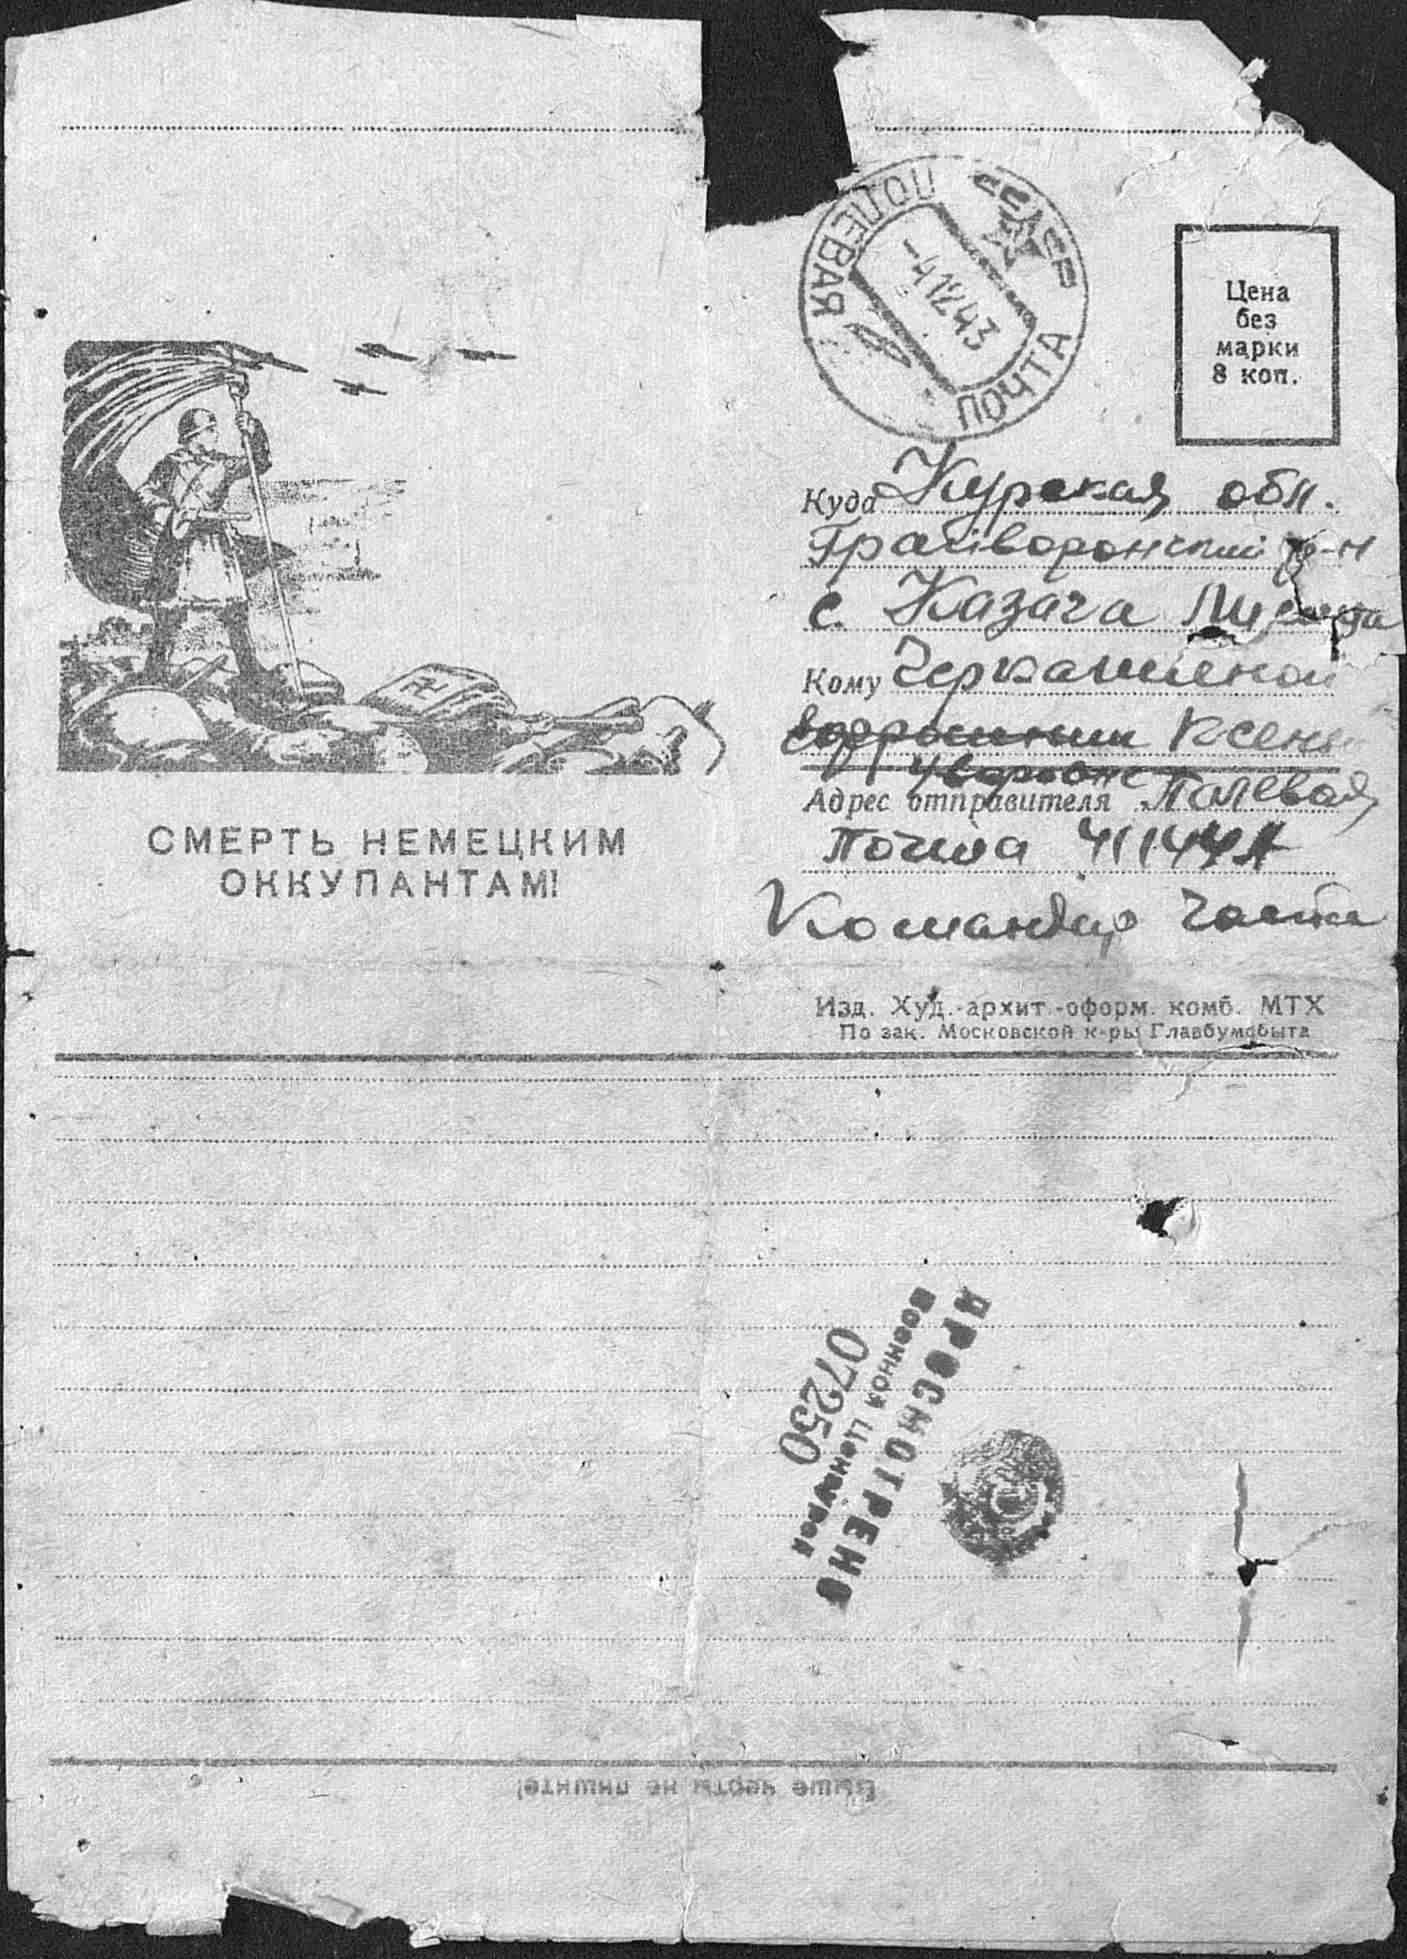 СССР
ПОЛЕВАЯ ПОЧТА
-4 12 43
Цена
без
марки
8 коп.
Куда Курская обл.
Грайворонский р-н
с. Казача
Кому Черкашиной
Ксени
Адрес отправителя Полевая
почта 41144
Командир части
СМЕРТЬ НЕМЕЦКИМ
ОККУПАНТАМ!
Изд. Худ.-архит.-оформ. комб. МТХ
По зак. Московской к-ры Главбумсбыта
ПРОСМОТРЕНО
Военной Цензурой
07250
Выше черты не пишите!